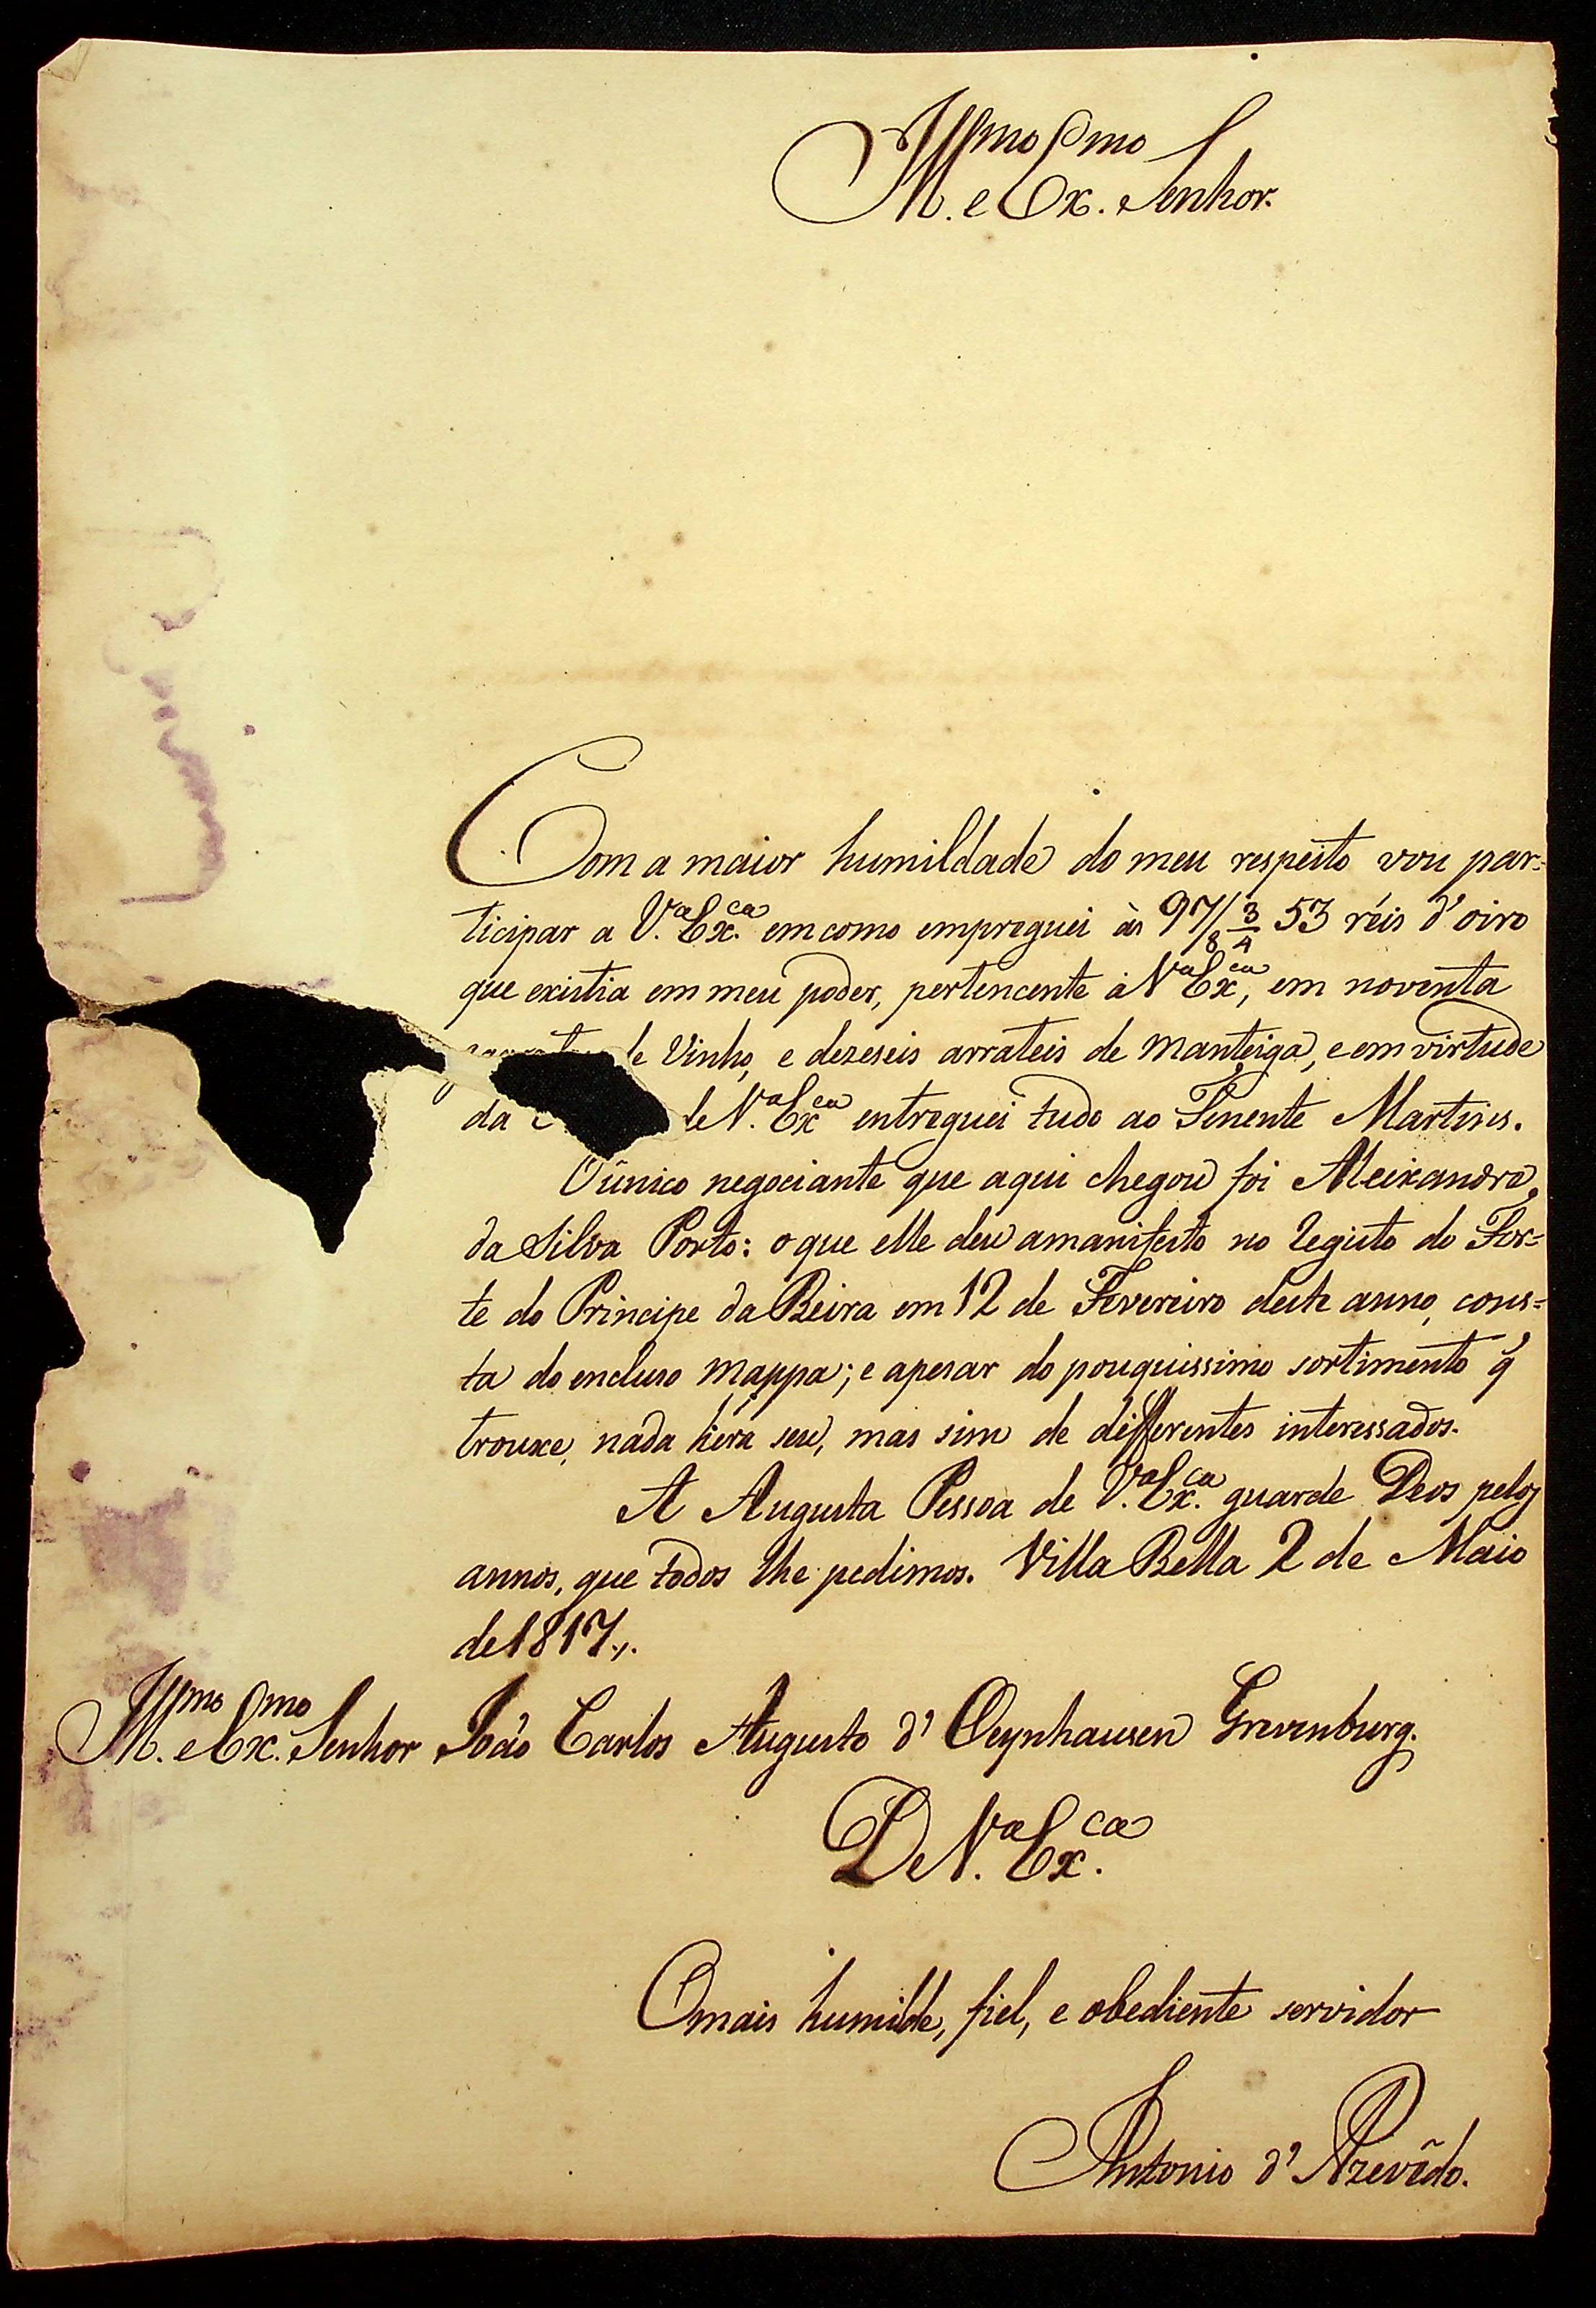 Ill.mo e Ex.mo Senhor.
Com a maior humildade do meu respeito vou par=
ticipar a V.a Ex.ca em como empreguei às 97/8 3/4 53 réis d'oiro
que existia em meu poder, pertencente à V.a Ex.ca, em noventa
de Vinho, e dezeseis arrateis de manteiga, e em virtude
da de V.a Ex.ca entreguei tudo ao Tenente Martins.
O único negociante que aqui chegou foi Aleixandre
da Silva Porto: o que elle deu a manifesto no Registo do For=
te do Principe da Beira em 12 de Fevereiro deste anno, cons=
ta do encluso mappa; e apesar do pouquissimo sortimento q̃
trouxe, nada héra seu, mas sim de differentes interessados.
A Augusta Pessoa de V.a Ex.ca guarde Deos pelos
annos, que todos lhe pedimos. Villa Bella 2 de Maio
de 1817.
Ill.mo e Ex.mo Senhor João Carlos Augusto d' Oeynhausen Grevenburg.
De V.a Ex.ca
O mais humilde, fiel, e obediente servidor
Antonio d' Azevêdo.